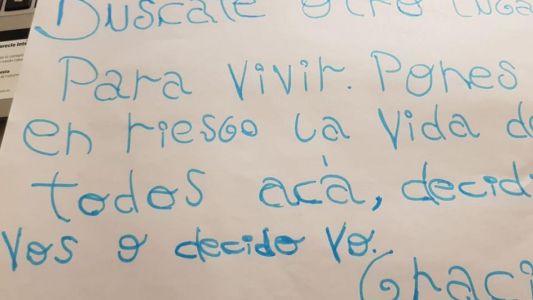 Buscale otro luga
Para vivir. Pones
en riesgo la vida de
todos acá, decid
vos o decido yo.
Graci